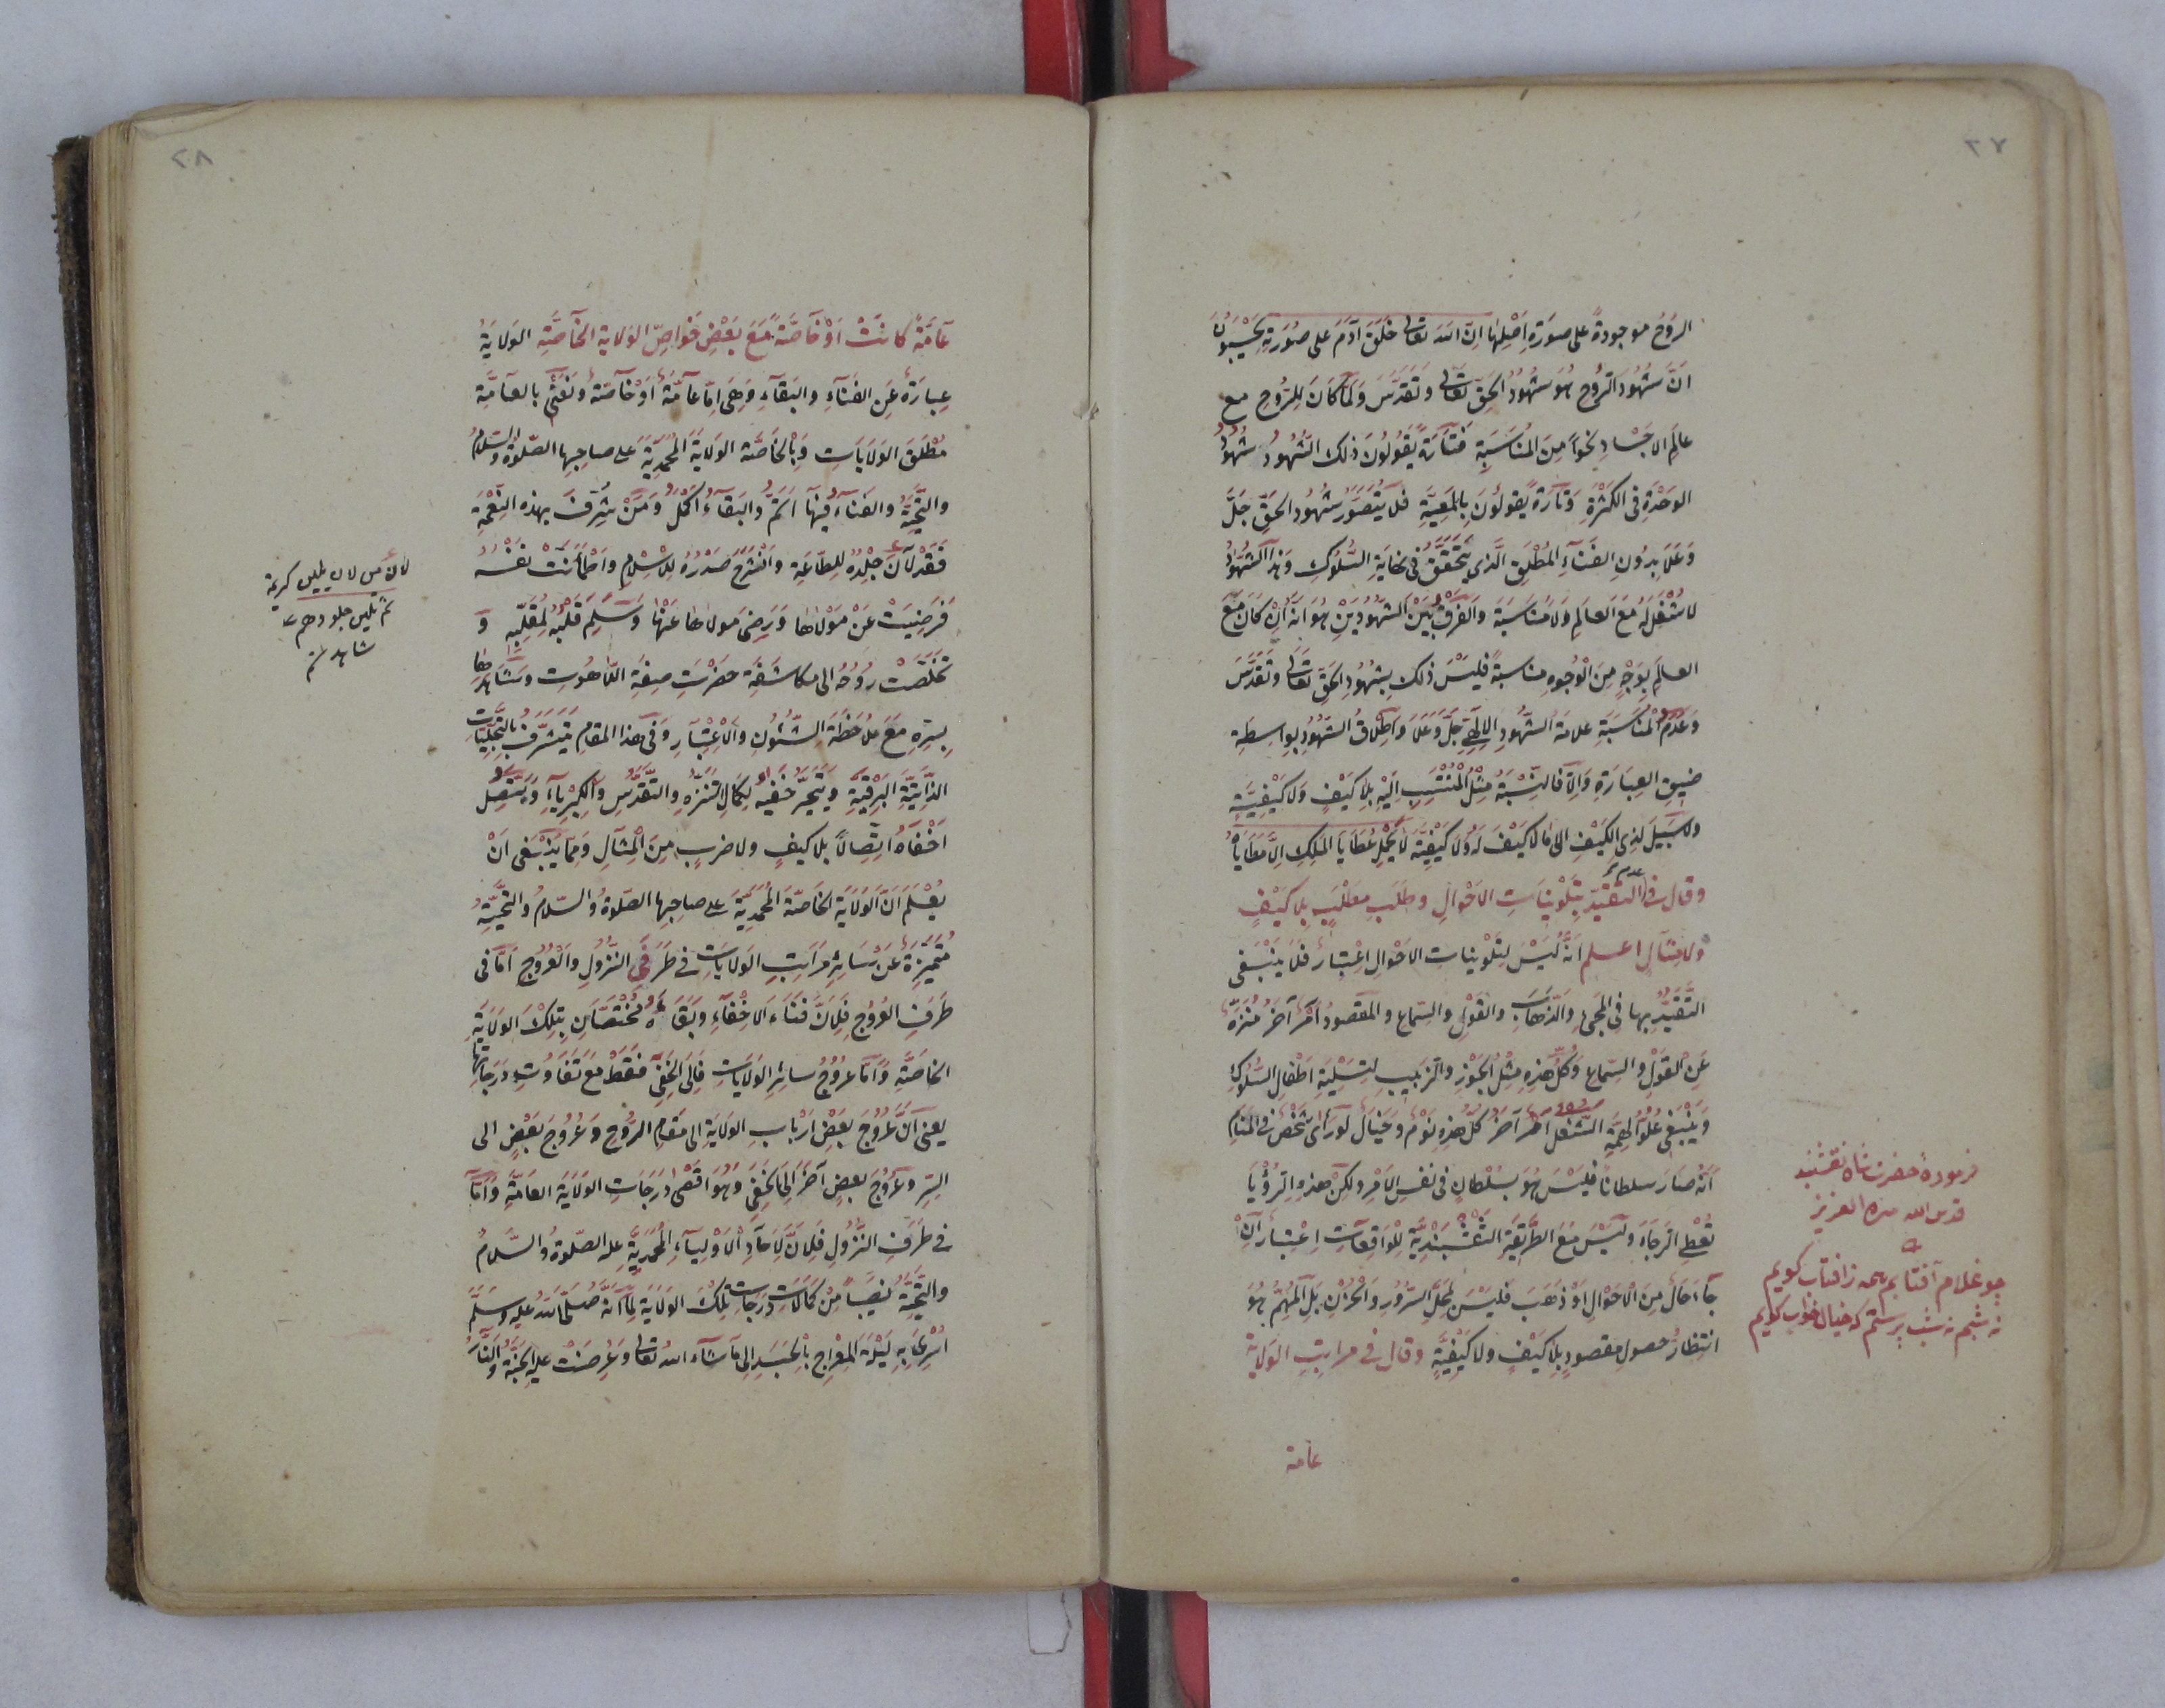 ٢٧
الرُّوحُ موجودةً على صورَةِ اَصْلِهَا اِنَّ اللهَ تعالى خَلَقَ آدَمَ على صُورَتِهِ يَحْسَبُونَ
اَنَّ شُهُودَ الرُّوحِ هُوَ شُهُودُ الحَقِّ تعالى وَتَقَدَّسَ وَلَمَّا كَانَ لِلرُّوحِ مع
عالَمِ الاجْسَادِ نحواً مِنَ المُنَاسَبَةِ فَتَارَةً يَقُولُونَ ذلك الشُّهُودُ شُهُودُ
الوَحْدَةِ فى الكَثْرَةِ وَتارَةً يقولُونَ بِالمَعِيَّةِ فلا يُتَصَوَّرُ شُهُودُ الحَقِّ جَلَّ
وَعَلَا بِدُونِ الفَنَاءِ المُطْلَقِ الَّذِى يَتَحَقَّقُ فى نِهَايَةِ السُّلُوكِ وَهٰذَا الشُّهُودُ
لا شُغْلَ لَهُ مَعَ العالَمِ وَلا مُنَاسَبَةَ وَالفَرْقُ بَيْنَ الشُّهُودَيْنِ هُوَ اَنَّهُ اِنْ كَانَ مَعَ
العالَمِ بِوَجْهٍ مِنَ الْوُجُوهِ مناسبةً فَلَيْسَ ذلك بِشُهُودِ الحَقِّ تَعَالَى وَتَقَدَّسَ
وَعَدَمُ المُنَاسَبَةِ علامَةُ الشُّهُودِ الاِلٰهِىِّ جَلَّ وَعَلَا وَاِطْلَاقُ الشُّهُودِ بِوَاسِطَةِ
ضِيقِ العِبَارَةِ وَاِلَّا فَالنِّسْبَةُ مِثْلُ المُنْتَسِبِ اِلَيْهِ بِلَا كَيْفٍ وَلا كَيْفِيَّةٍ
ولا سَبِيلَ لِذِى الكَيْفِ الى مَا لا كَيْفَ لَهُ وَلا كَيْفِيَّةَ لَا يَحْمِلُ عَطَايَا المَلِكِ اِلَّا مَطَايَاهُ
وقال فى عدم التقيّد بِتَلْوِينَاتِ الاحْوالِ وطَلَبِ مطْلَبٍ بِلا كَيْفٍ
ولا مِثَالٍ اعلم اَنَّهُ لَيْسَ لِتَلْوِيناتِ الاحْوالِ اعْتِبَارٌ فَلَا يَنْبَغِى
التَّقَيُّدُ بِهَا فى المَجِىءِ وَالذَّهَابِ وَالقَوْلِ والسّماعِ والمقصودُ اَمْرٌ آخَرُ مُنَزَّهٌ
عَنِ القَوْلِ وَالسّماعِ وَكُلُّ هٰذِهِ مِثْلُ الجَوْزِ والزَّبِيبِ لِتَسْلِيَةِ اَطْفَالِ السُّلُوكِ
وَيَنْبَغِى عُلُوُّ الهِمَّةِ الشُّغْلُ اَمْرٌ آخَرُ كُلُّ هٰذِهِ نَوْمٌ وَخَيَالٌ لَوْ رَأَى شَخْصٌ فى المَنَامِ
اَنَّهُ صَارَ سلطاناً فَلَيْسَ هُوَ بِسُلْطَانٍ فى نفسِ الاَمْرِ ولكِنْ هذهِ الرُّؤْيَا
تُعْطِى الرَّجَاءَ وَلَيْسَ مَعَ الطَّرِيقَةِ النَّقْشْبَنْدِيَّةِ لِلْوَاقِعَاتِ اِعْتِبَارٌ اِنْ
جَاءَ حَالٌ مِنَ الْاَحْوالِ اَوْ ذَهَبَ فَلَيْسَ لِمَحَلِّ السُّرُورِ وَالْحُزْنِ بَلِ المُهِمُّ هُوَ
انتظارُ حصولِ مقصودٍ بِلا كَيْفٍ ولا كَيْفِيَّةٍ وقال فى مراتِبِ الوَلاية
عامة
فرمودهٔ حضرت شاه نقشبند
قدس الله سره العزيز
چو غلام آفتابم همه ز افتاب كويم
نه شبم نه شب پرستم كه خيال خواب كويم
٢٨
عَامَّةً كانَتْ اَوْ خَاصَّةً مَعَ بَعْضِ خَوَاصِّ الوَلاية الخَاصَّةِ الوِلايَةُ
عِبارَةٌ عَنِ الفَنَاءِ والبَقَاءِ وَهِىَ اِمَّا عَامَّةٌ اَوْ خَاصَّةٌ وَنَعْنِى بالعامَّةِ
مُطْلَقَ الوَلَايَاتِ وَبِالْخَاصَّةِ الوَلايَةَ المُحَمَّدِيَّةَ على صاحِبِها الصَّلوةُ والسَّلامُ
والتَّحِيَّةُ والفَنَاءُ فِيهَا اَتَمُّ والبَقَاءُ اَكْمَلُ وَمَنْ شُرِّفَ بهذه النِّعْمَةِ
فَقَدْ لَانَ جِلْدُهُ لِلطَّاعَةِ وَانْشَرَحَ صَدْرُهُ لِلاِسْلامِ وَاطْمَأَنَّتْ نَفْسُهُ
فَرَضِيَتْ عَنْ مَوْلَاهَا وَرَضِىَ مَولاهَا عَنْهَا وَسَلِمَ قَلْبُهُ لِمُقَلِّبِهِ وَ
تَخَلَّصَتْ رُوحُهُ الى مكاشَفَةِ حَضْرَتِ صِفَةِ اللَّاهُوتِ وَشَاهَدَ
بِسِرِّهِ مَعَ مُلاحَظَةِ الشُّئُونِ والاِعْتِبَارِ وَفى هذا المقامِ يَتَشَرَّفُ بالتَّجَلِّيَاتِ
الذَّاتِيَّةِ البَرْقِيَّةِ وَيَتَحَيَّرُ خَفِيُّهُ لِكَمَالِ التَّنَزُّهِ والتَّقَدُّسِ وَالكِبْرِيَاءِ وَيَتَّصِلُ
اَخْفَاهُ اتِّصَالاً بِلا كَيْفٍ ولا ضربٍ مِنَ المِثَالِ وَمِمَّا يَنْبَغى اَنْ
يُعْلَمَ اَنَّ الوَلايَةَ الخَاصَّةَ المُحَمَّدِيَّةَ على صاحِبِها الصَّلوةُ والسّلامُ والتّحيَّةُ
مُتَمَيِّزَةٌ عَنْ سَائِرِ مَرَاتِبِ الوَلاياتِ فى طَرَفَىِ النُّزُولِ والعُرُوجِ اَمَّا فى
طَرَفِ العُرُوجِ فَلِاَنَّ فَنَاءَ الاَخْفَى وَبَقَاءَهُ مُخْتَصَّانِ بِتِلْكَ الوَلَايَةِ
الخاصَّةِ وَاَمَّا عُرُوجُ سائِرِ الوَلاياتِ فَاِلَى الخَفِىِّ فَقَطْ مَعَ تَفَاوُتِ دَرَجَاتِهَا
يعنى اَنَّ عُرُوجَ بَعْضِ اَرْبابِ الوَلايَةِ الى مَقَامِ الرُّوحِ وَعُرُوجَ بَعْضٍ الى
السِّرِّ وَعُرُوجَ بعضٍ آخَرَ اِلَى الخَفِىِّ وَهُوَ اَقْصَى دَرَجَاتِ الوَلايَةِ العَامَّةِ وَاَمَّا
فى طَرَفِ النُّزُولِ فَلِاَنَّ لِاَجْسَادِ الاَوْلِيَاءِ المُحَمَّدِيَّةِ عليه الصّلوةُ والسَّلامُ
والتَّحِيَّةُ نَصِيباً مِنْ كَمَالَاتِ دَرَجَاتِ تِلْكَ الوَلايَةِ لِمَا اَنَّهُ صَلَّى اللهُ عليه وسلّم
اُسْرِىَ بِهِ لَيْلَةَ المِعْرَاجِ بِالْجَسَدِ اِلى مَا شَاءَ اللهُ تعالى وَعُرِضَتْ عليه الجَنَّةُ والنَّارُ
لان من لان يلين كريمة
ثم تلين جلودهم
شاهد